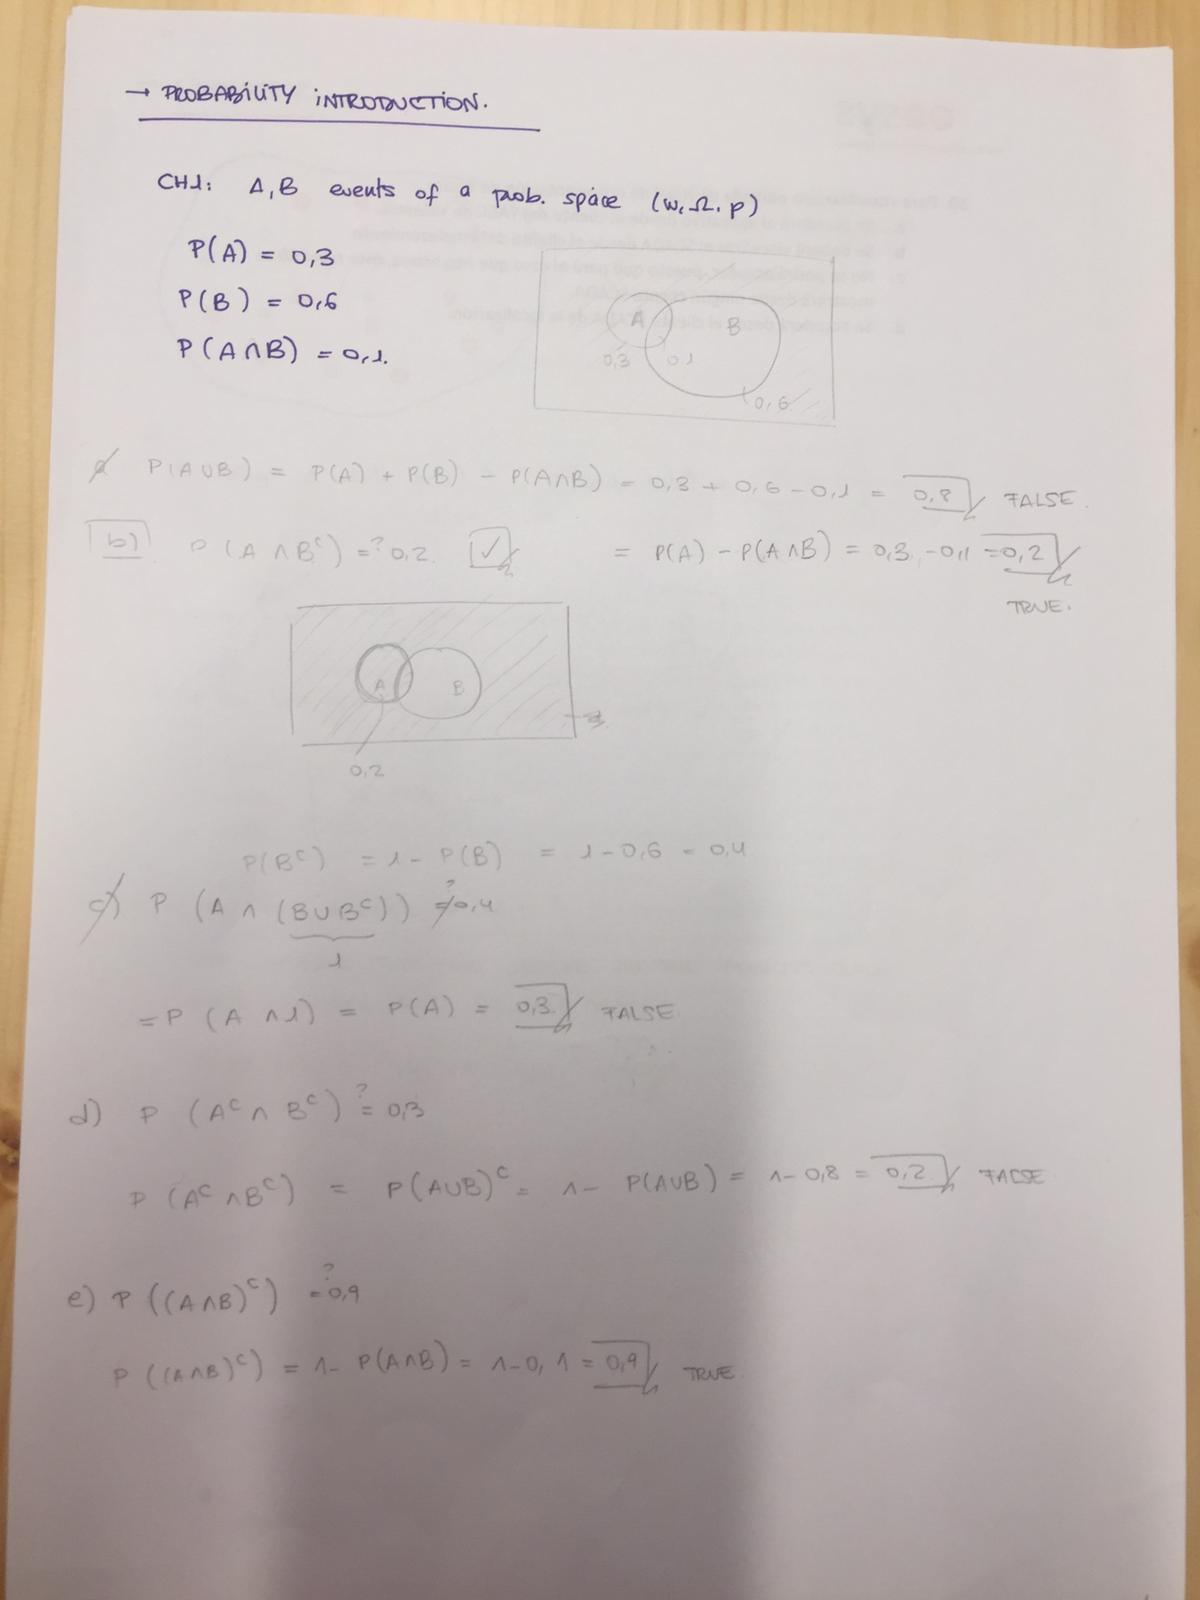 → PROBABILITY INTRODUCTION.
CH1: A, B events of a prob. space (w, Ω, p)
P(A) = 0,3
P(B) = 0,6
P(A∩B) = 0,1.
A B
0,3 0,1
0,6
a) P(A∪B) = P(A) + P(B) - P(A∩B) = 0,3 + 0,6 - 0,1 = 0,8 FALSE.
b) P(A ∩ Bᶜ) =? 0,2. ✓ = P(A) - P(A∩B) = 0,3 - 0,1 = 0,2
TRUE.
A B
0,2
P(Bᶜ) = 1 - P(B) = 1 - 0,6 = 0,4
c) P (A ∩ (B∪Bᶜ)) =? 0,4
1
= P (A ∩ 1) = P(A) = 0,3. FALSE.
d) P (Aᶜ ∩ Bᶜ) =? 0,3
P (Aᶜ∩Bᶜ) = P(A∪B)ᶜ = 1 - P(A∪B) = 1 - 0,8 = 0,2. FALSE
e) P ((A∩B)ᶜ) =? 0,9
P ((A∩B)ᶜ) = 1 - P(A∩B) = 1 - 0,1 = 0,9 TRUE.